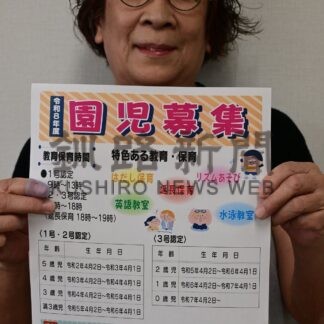 令和8年度
園児募集
釧路新聞
KUSHIRO NEWS WEB
教育保育時間
●1号認定
9時~13時
2・3号認定
7時~18時
(延長保育 18時~19時)
特色ある教育・保育
はだし保育
リズムあそび
英語教室
水泳教室
(1号・2号認定)
年齢 生年月日
5歳児 令和2年4月2日~令和3年4月1日
4歳児 令和3年4月2日~令和4年4月1日
3歳児 令和4年4月2日~令和5年4月1日
満3歳児 令和5年4月2日~令和6年4月1日
(3号認定)
年齢 生年月日
2歳児 令和5年4月2日~令和6年4月1日
1歳児 令和6年4月2日~令和7年4月1日
0歳児 令和7年4月2日~